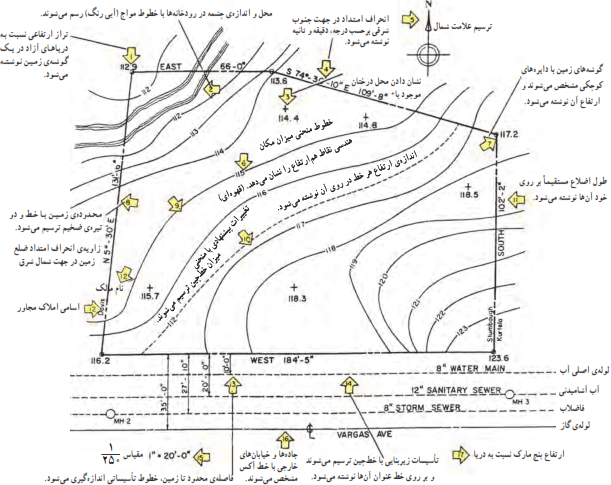 محل و اندازه‌ی چشمه در رودخانه‌ها با خطوط مواج (آبی رنگ) رسم می‌شوند.
تراز ارتفاعی نسبت به
دریاهای آزاد در یک
گوشه‌ی زمین نوشته
می‌شود.
انحراف امتداد در جهت جنوب
شرقی برحسب درجه، دقیقه و ثانیه
نوشته می‌شود.
ترسیم علامت شمال
N
5
1
112.9
EAST
66'-0"
113.6
4
S 74°-3'-10"E
109'-8"
نشان دادن محل درختان
موجود با +
گوشه‌های زمین با دایره‌های
کوچکی مشخص می‌شوند و
ارتفاع آن نوشته می‌شود.
112
112
113
114
3
114.4
114.8
117.2
7
خطوط منحنی میزان مکان
هندسی نقاط هم ارتفاع را نشان می‌دهد. (قهوه‌ای)
6
115
116
اندازه‌ی ارتفاع هر خط در روی آن نوشته می‌شود.
118.5
102'-2"
SOUTH
11
طول اضلاع مستقیماً بر روی
خود آن‌ها نوشته می‌شود.
131'-6"
N 5°-30' E
8
محدوده‌ی زمین با خط و در
تیره‌ی ضخیم ترسیم می‌شود.
9
تغییرات پیشنهادی با منحنی
میزان خط‌چین ترسیم می‌شوند
10
117
زاویه‌ی انحراف امتداد ضلع
زمین در جهت شمال شرق
12
نام مالک
Davis
12
اسامی املاک مجاور
115.7
112
118.3
118
119
120
121
122
123
Stumbough
Kurtela
116.2
WEST 184'-5"
123.6
35'-0"
27'-10"
20'-0"
10'-0"
8" WATER MAIN
لوله‌ی اصلی آب
13
14
12" SANITARY SEWER
MH 3
آب آشامیدنی
MH 2
8" STORM SEWER
فاضلاب
VARGAS AVE
لوله‌ی گاز
16
مقیاس ۱/۲۵۰
1" = 20'-0"
15
فاصله‌ی محدود تا زمین، خطوط تأسیساتی اندازه‌گیری می‌شود.
جاده‌ها و خیابان‌های
خارجی با خط آکس
مشخص می‌شوند.
تأسیسات زیربنایی با خط‌چین ترسیم می‌شوند
و بر روی خط عنوان آن‌ها نوشته می‌شود.
17
ارتفاع بنچ مارک نسبت به دریا